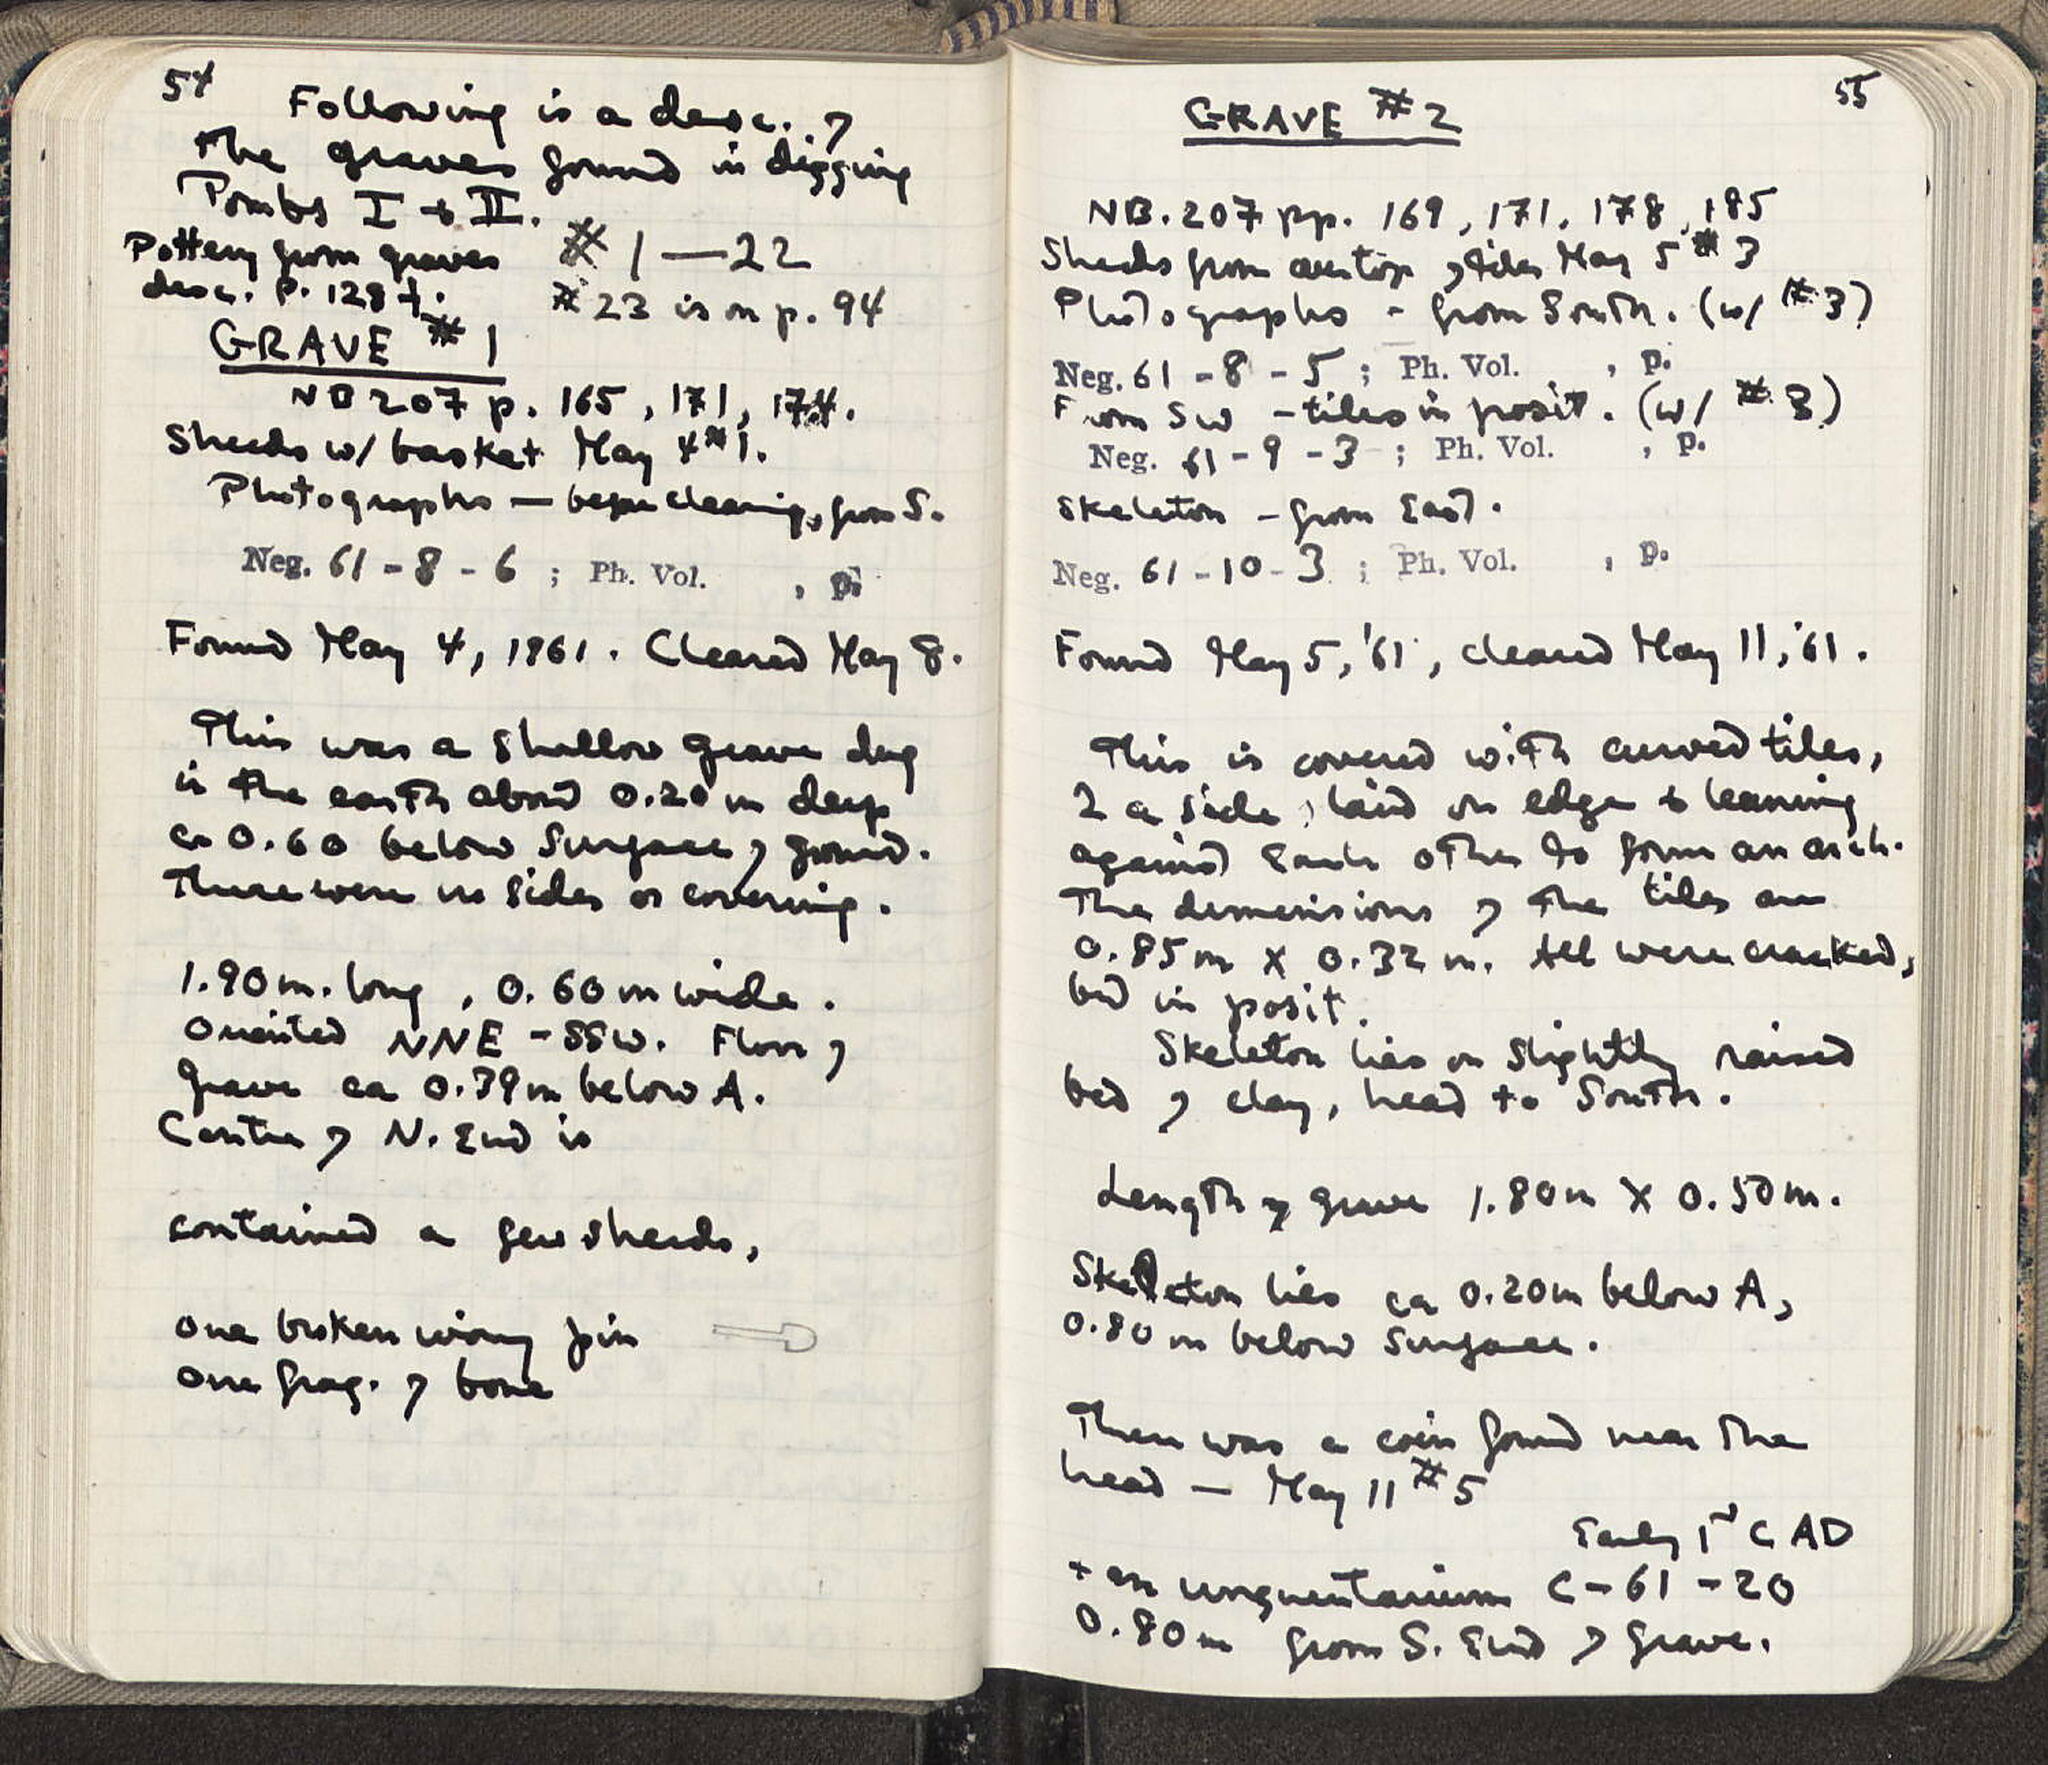 54
Following is a desc. of
the graves found in digging
Tombs I + II.
Pottery from graves # 1 — 22
desc. p. 128 f. # 23 is on p. 94
GRAVE # 1
NB 207 p. 165, 171, 174.
Sherds w/ basket May 4 # 1.
Photographs — before cleaning, from S.
Neg. 61 - 8 - 6 ; Ph. Vol. , p.
Found May 4, 1961. Cleared May 8.
This was a shallow grave dug
in the earth about 0.20 m deep
ca 0.60 below surface of ground.
There were no sides or covering.
1.90 m. long, 0.60 m wide.
Oriented NNE - SSW. Floor of
grave ca 0.39 m below A.
Centre of N. End is
contained a few sherds,
one broken pin
one frag. of bone
55
GRAVE # 2
NB. 207 pp. 169, 171, 178, 185
Sherds from on top of tiles May 5 # 3
Photographs - from South. (w/ # 3)
Neg. 61 - 8 - 5 ; Ph. Vol. , p.
From SW - tiles in posit. (w/ # 3)
Neg. 61 - 9 - 3 ; Ph. Vol. , p.
Skeleton - from East.
Neg. 61 - 10 - 3 ; Ph. Vol. , p.
Found May 5, '61, cleared May 11, '61.
This is covered with curved tiles,
2 a side, laid on edge & leaning
against each other to form an arch.
The dimensions of the tiles are
0.85 m X 0.32 m. All were cracked,
but in posit.
Skeleton lies on slightly raised
bed of clay, head to South.
Length of grave 1.80 m X 0.50 m.
Skeleton lies ca 0.20 m below A,
0.80 m below surface.
There was a coin found near the
head — May 11 # 5
Early 1st C AD
+ an unguentarium C - 61 - 20
0.80 m from S. End of grave.